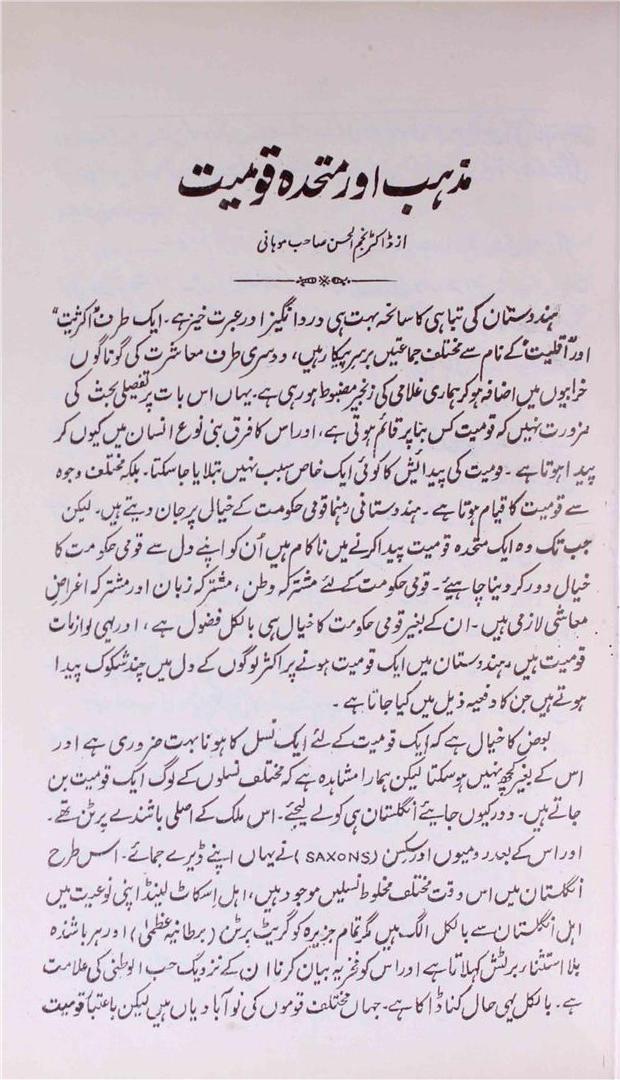 مذہب اور متحدہ قومیت
از ڈاکٹر نجم الحسن صاحب موہانی
ہندوستان کی تباہی کا سانحہ بہت ہی دردانگیز اور عبرت خیز ہے۔ ایک طرف "اکثریت"
اور "اقلیت" کے نام سے مختلف جماعتیں برسرپیکار ہیں، دوسری طرف معاشرت کی گوناگوں
خرابیوں میں اضافہ ہو کر ہماری غلامی کی زنجیر مضبوط ہو رہی ہے۔ یہاں اس بات پر تفصیلی بحث کی
ضرورت نہیں کہ قومیت کس بنا پر قائم ہوتی ہے، اور اس کا فرق بنی نوع انسان میں کیوں کر
پیدا ہوتا ہے۔ ومیت کی پیدائش کا کوئی ایک خاص سبب نہیں بتلایا جا سکتا۔ بلکہ مختلف وجوہ
سے قومیت کا قیام ہوتا ہے۔ ہندوستانی رہنما قومی حکومت کے خیال پر جان دیتے ہیں۔ لیکن
جب تک وہ ایک متحدہ قومیت پیدا کرنے میں ناکام ہیں اُن کو اپنے دل سے قومی حکومت کا
خیال دور کر دینا چاہیئے۔ قومی حکومت کے لئے مشترکہ وطن، مشترکہ زبان اور مشترکہ اغراض
معاشی لازمی ہیں۔ ان کے بغیر قومی حکومت کا خیال ہی بالکل فضول ہے، اور یہی لوازمات
قومیت ہیں، ہندوستان میں ایک قومیت ہونے پر اکثر لوگوں کے دل میں چند شکوک پیدا
ہوتے ہیں جن کا دفعیہ ذیل میں کیا جاتا ہے۔
بعض کا خیال ہے کہ ایک قومیت کے لئے ایک نسل کا ہونا بہت ضروری ہے اور
اس کے بغیر کچھ نہیں ہو سکتا لیکن ہمارا مشاہدہ ہے کہ مختلف نسلوں کے لوگ ایک قومیت بن
جاتے ہیں۔ دور کیوں جایئے انگلستان ہی کو لے لیجئے۔ اس ملک کے اصلی باشندے برٹن تھے۔
اور اس کے بعد رومیوں اور سکسن (SAXONS) نے یہاں اپنے ڈیرے جمائے۔ اس طرح
انگلستان میں اس وقت مختلف مخلوط نسلیں موجود ہیں، اہل اسکاٹ لینڈ اپنی نوعیت میں
اہل انگلستان سے بالکل الگ ہیں مگر تمام جزیرہ کو گریٹ برٹن (برطانیہ عظمٰی) اور ہر باشندہ
بلا استثناء برٹش کہلاتا ہے اور اس کو فخریہ بیان کرنا ان کے نزدیک حب الوطنی کی علامت
ہے۔ بالکل یہی حال کناڈا کا ہے۔ جہاں مختلف قوموں کی نوآبادیاں ہیں لیکن باعتبار قومیت